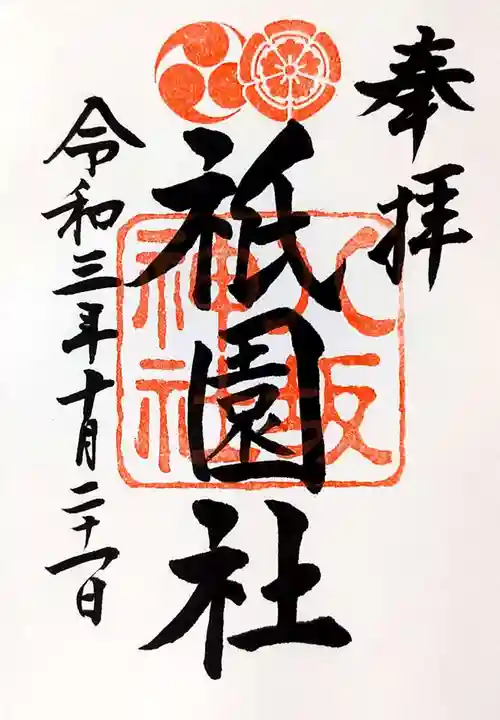 奉拝
祇園社
八坂神社
令和三年十月二十一日